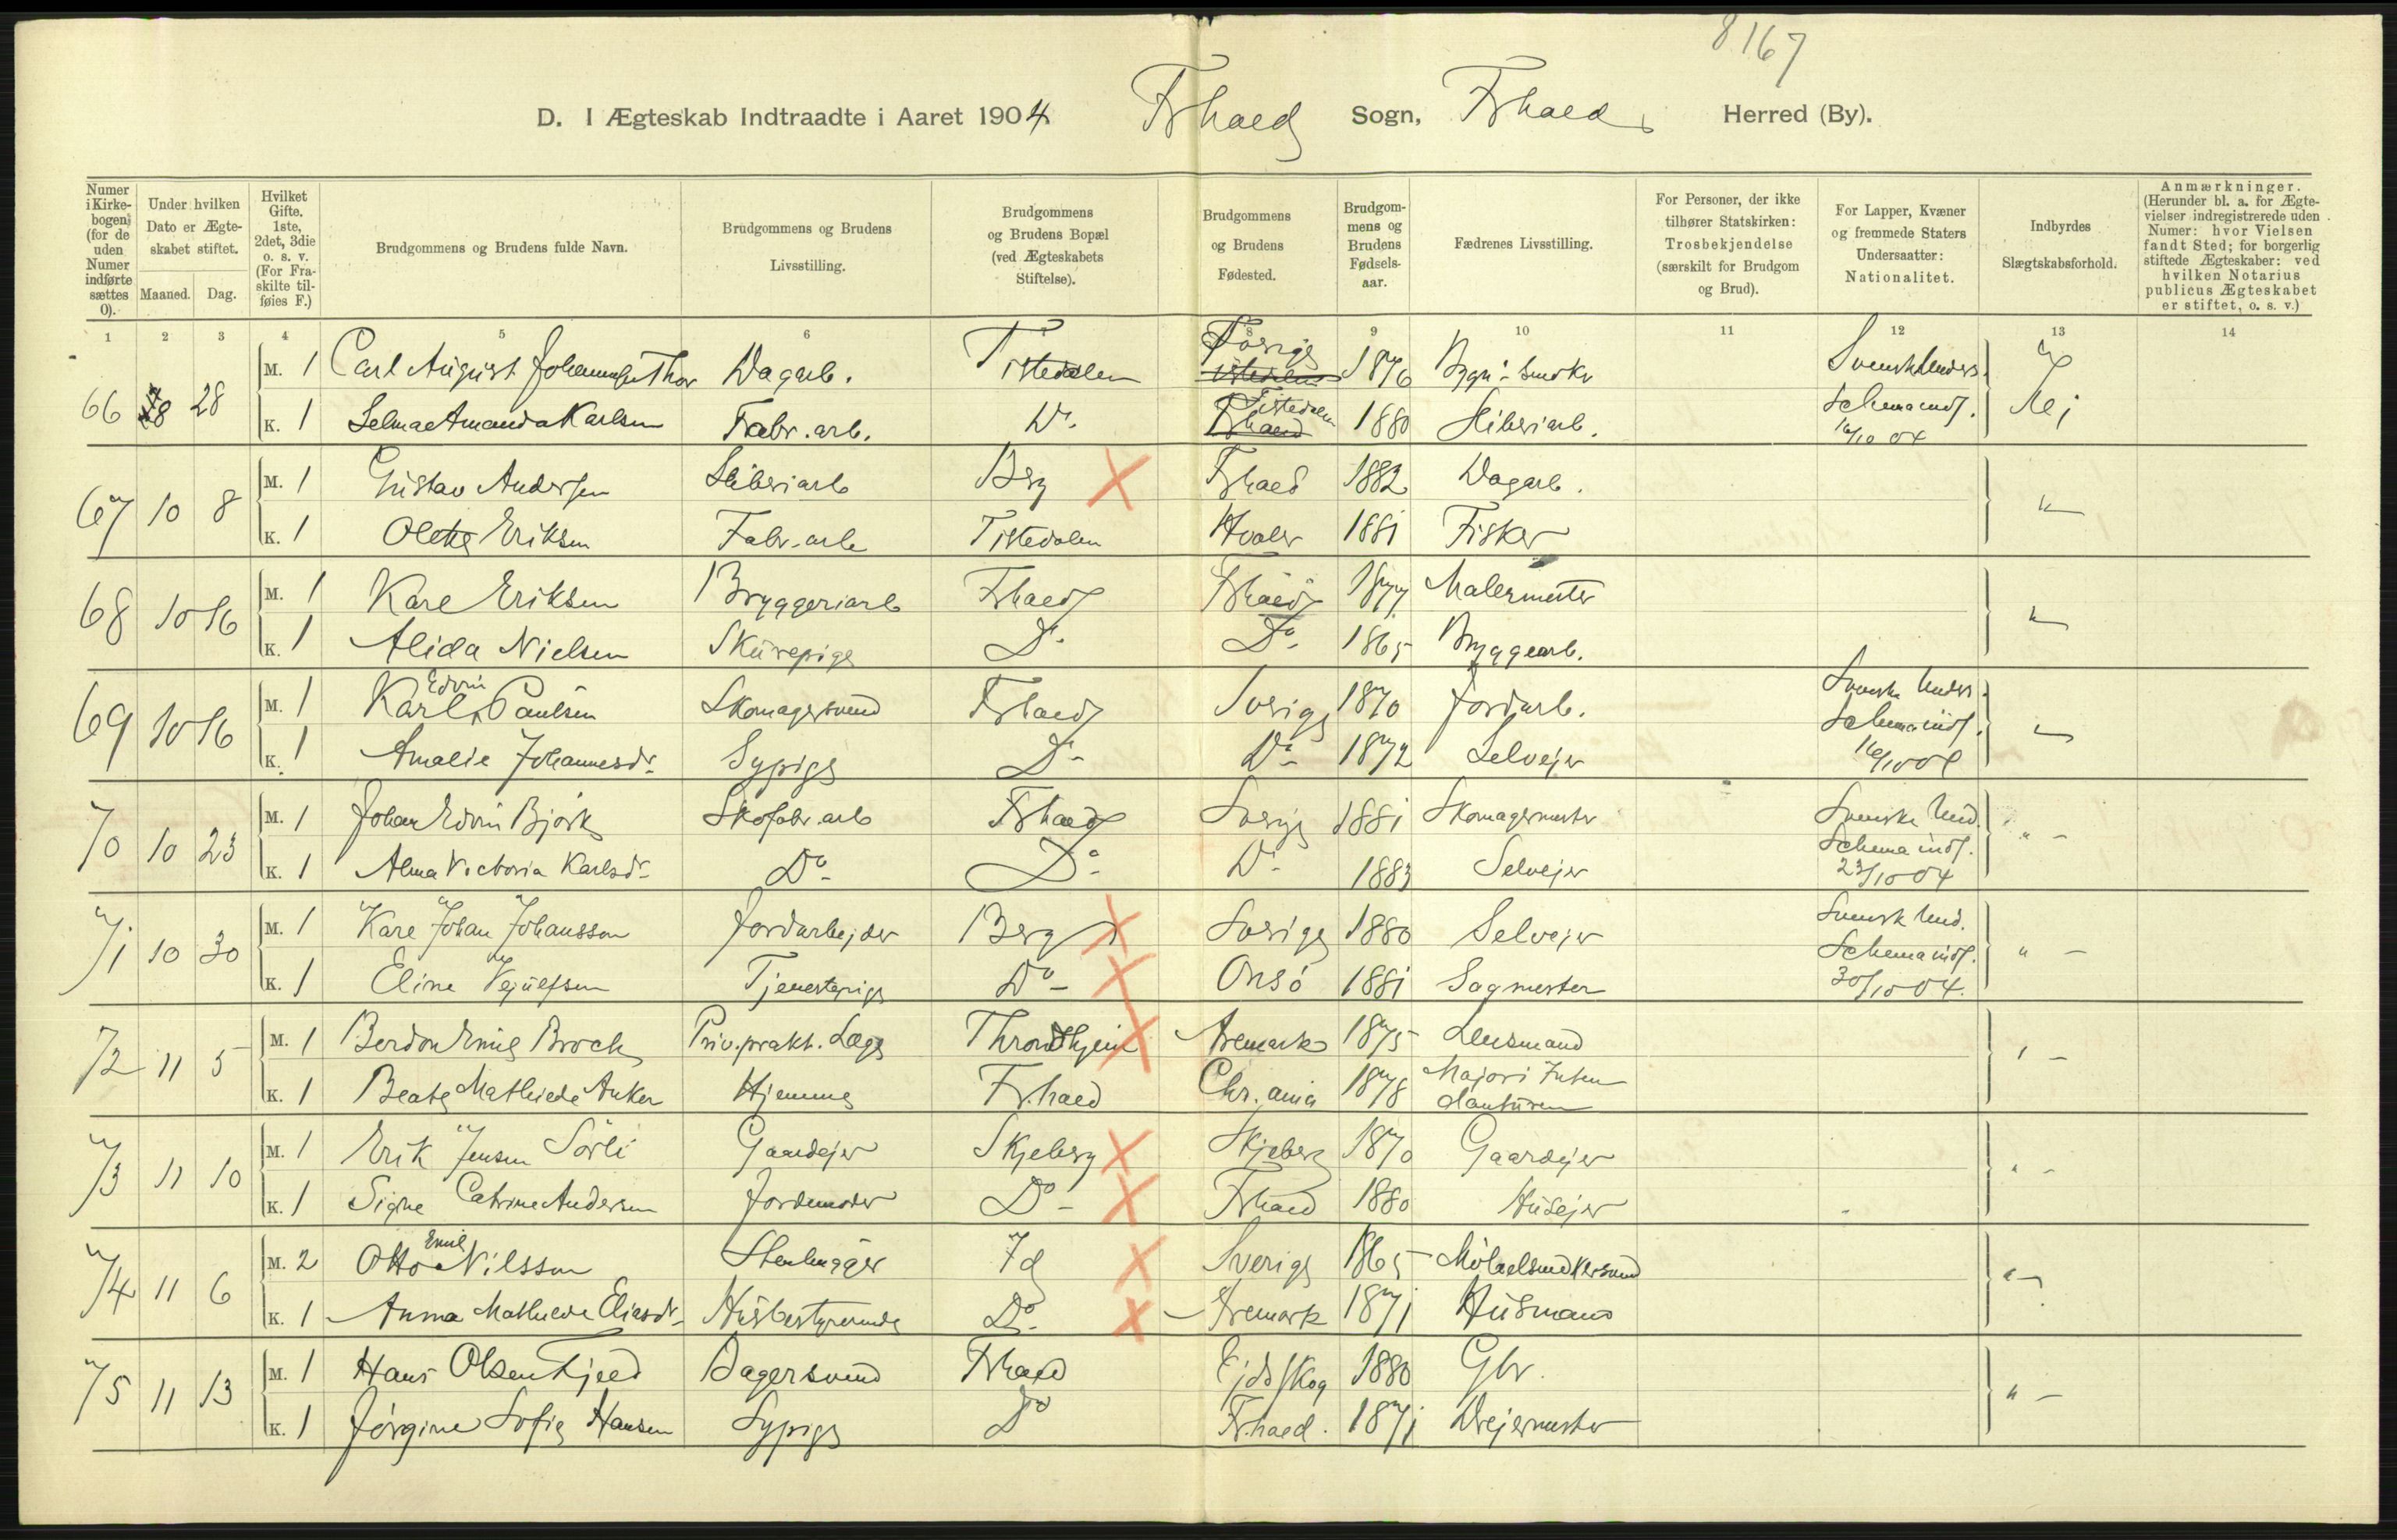 8167
D. I Ægteskab Indtraadte i Aaret 1904 Frhald Sogn, Frhald Herred (By).
Numer i Kirkebogen; (for de uden Numer indførte sættes 0).
Under hvilken Dato er Ægteskabet stiftet.
Maaned. Dag.
Hvilket Gifte. 1ste, 2det, 3die o. s. v. (For Fraskilte tilføies F.)
Brudgommens og Brudens fulde Navn.
Brudgommens og Brudens Livsstilling.
Brudgommens og Brudens Bopæl (ved Ægteskabets Stiftelse).
Brudgommens og Brudens Fødested.
Brudgommens og Brudens Fødselsaar.
Fædrenes Livsstilling.
For Personer, der ikke tilhører Statskirken: Trosbekjendelse (særskilt for Brudgom og Brud).
For Lapper, Kvæner og fremmede Staters Undersaatter: Nationalitet.
Indbyrdes Slægtskabsforhold.
Anmærkninger. (Herunder bl. a. for Ægtevielser indregistrerede uden Numer: hvor Vielsen fandt Sted; for borgerlig stiftede Ægteskaber: ved hvilken Notarius publicus Ægteskabet er stiftet, o. s. v.)
1 2 3 4 5 6 7 8 9 10 11 12 13 14
66 8 28 M. 1 Carl August Thor Dagarb. Tistedalen Sverige 1876 Svensk Unders.
K. 1 Selma Amanda Karlsen Fabr. arb. Do. Tistedalen Frhald 1880 Sliberiarb. Schema inds. 16/10 04 Nej
67 10 8 M. 1 Gustav Andersen Sliberiarb Berg Frhald 1882 Dagarb. "
K. 1 Olette Eriksen Fabr. arb Tistedalen Hvaler 1881 Fisker
68 10 16 M. 1 Karl Eriksen Bryggeriarb Frhald Frhald 1877 Malermester "
K. 1 Alida Nielsen Skurepige Do. Do. 1865 Bryggearb.
69 10 16 M. 1 Karl Edvin Paulsen Skomagersvend Frhald Sverige 1870 Jordarb. Svenske Unders.
K. 1 Amalie Johannesdr. Sypige Do. Do. 1872 Selvejer Schema inds. 16/10 04 "
70 10 23 M. 1 Johan Edvin Bjørk Skofabr. arb Frhald Sverige 1881 Skomagermester Svenske Und.
K. 1 Alma Victoria Karlsdr. Do. Do. Do. 1883 Selvejer Schema inds. 23/10 04 " -
71 10 30 M. 1 Karl Johan Johansson Jordarbejder Berg Sverige 1880 Selvejer Svensk Und.
K. 1 Eline Tjenestepige Do. Onsø 1881 Sagmester Schema inds. 30/10 04. " -
72 11 5 M. 1 Emil Broch Priv. prakt. Læge Throndhjem Aremark 1875 Lensmand " -
K. 1 Beate Mathilde Anker Hjemme Fr.hald Chr.ania 1878 Major i Intendanturen
73 11 10 M. 1 Erik Jensen Sørli Gaardejer Skjeberg Skjeberg 1870 Gaardejer " -
K. 1 Signe Catrine Andersen Jordemoder Do. Frhald 1880 Husejer
74 11 6 M. 2 Otto Emil Nilsson Stenhugger Id Sverige 1865 Møbelsnedkersvend " -
K. 1 Anna Mathilde Eliasdr. Husbestyrerinde Do. Aremark 1871 Husmand
75 11 13 M. 1 Hans Olsen Fjeld Bagersvend Frhald Ejdskog 1880 Gbr. " -
K. 1 Jørgine Sofie Hansen Sypige Do Fr.hald. 1871 Drejermester